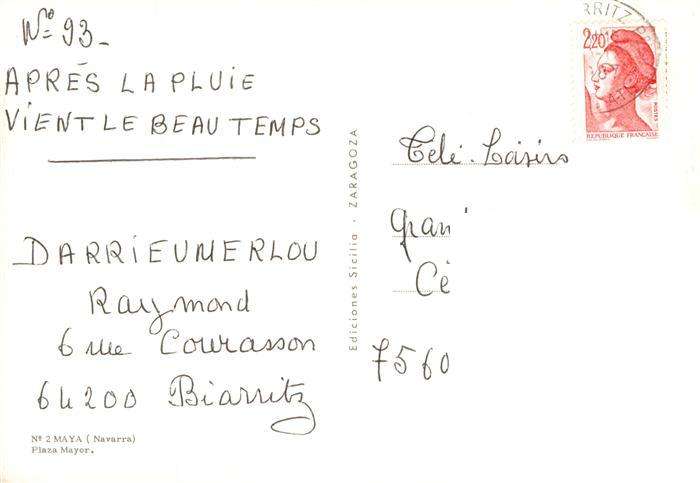 Nº 93_
APRÈS LA PLUIE
VIENT LE BEAU TEMPS
DARRIEUMERLOU
Raymond
6 rue Courasson
64200 Biarritz
Nº 2 MAYA ( Navarra)
Plaza Mayor.
Ediciones Sicilia · ZARAGOZA
RRITZ
2,20
POSTES
REPUBLIQUE FRANÇAISE
Télé-Loisirs
Gran
Cé
7560